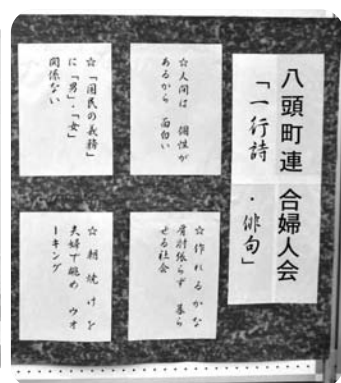 八頭町連合婦人会
「一行詩・俳句」
☆人間は 個性が
あるから 面白い
☆「国民の義務」
に「男」・「女」
関係ない
☆作れるかな
肩肘張らず 暮ら
せる社会
☆朝焼けを
夫婦で眺め ウオ
ーキング